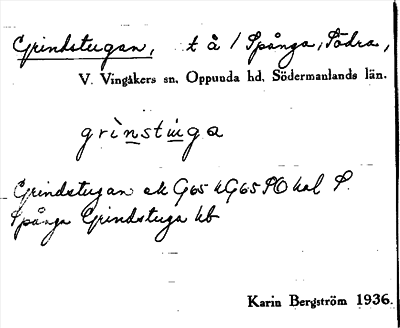 Grindstugan, t å 1 Spånga, Södra,
V. Vingåkers sn. Oppunda hd. Södermanlands län.
grìnstùga
Grindstugan ek G65 hG65 SO hal S.
Spånga Grindstuga hb
Karin Bergström 1936.